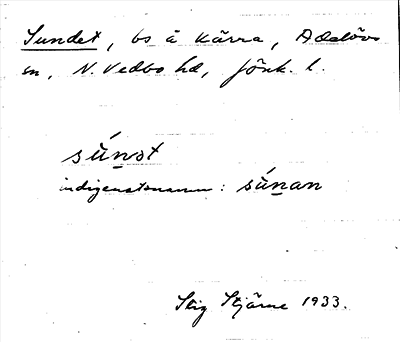 Sundet, bs å Kärra, Adelövs
sn, N. Vedbo hd, Jönk. l.
súnət
indigenatsnamn: súnan
Stig Stjärne 1933.